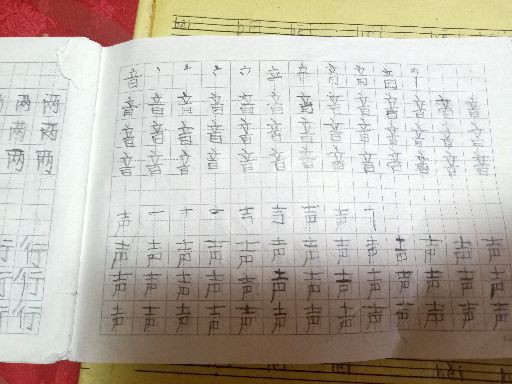 两 两
两 两
两 两
行
行
行
音
音 音 音 音 音 音 音 音 音 音 音 音 音
音 音 音 音 音 音 音 音 音 音 音 音 音
音 音 音 音 音 音 音 音 音 音 音 音 音
声 一 十
声 声 声 声 声 声 声 声 声 声 声 声 声
声 声 声 声 声 声 声 声 声 声 声 声 声
声 声 声 声 声 声 声 声 声 声 声 声 声